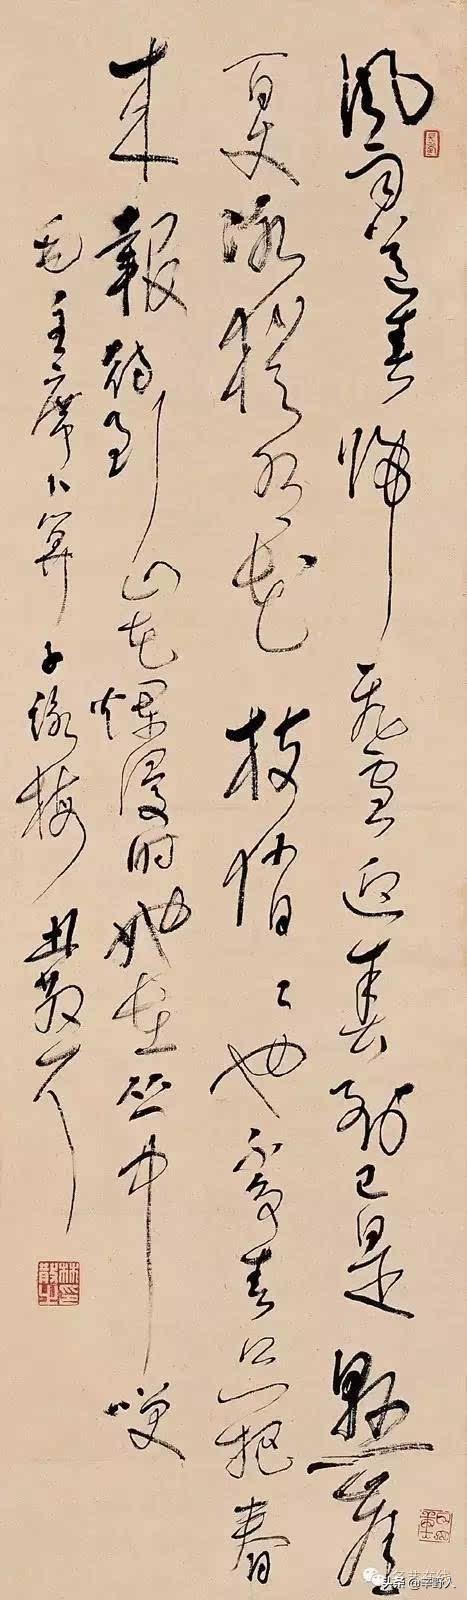 風雨送春歸飛雪迎春到已是懸崖
百丈冰猶有花枝俏〻也不爭春只把春
來報待到山花爛漫時她在丛中咲
毛主席卜算子詠梅 林散耳
林散之印
头条@辛野人